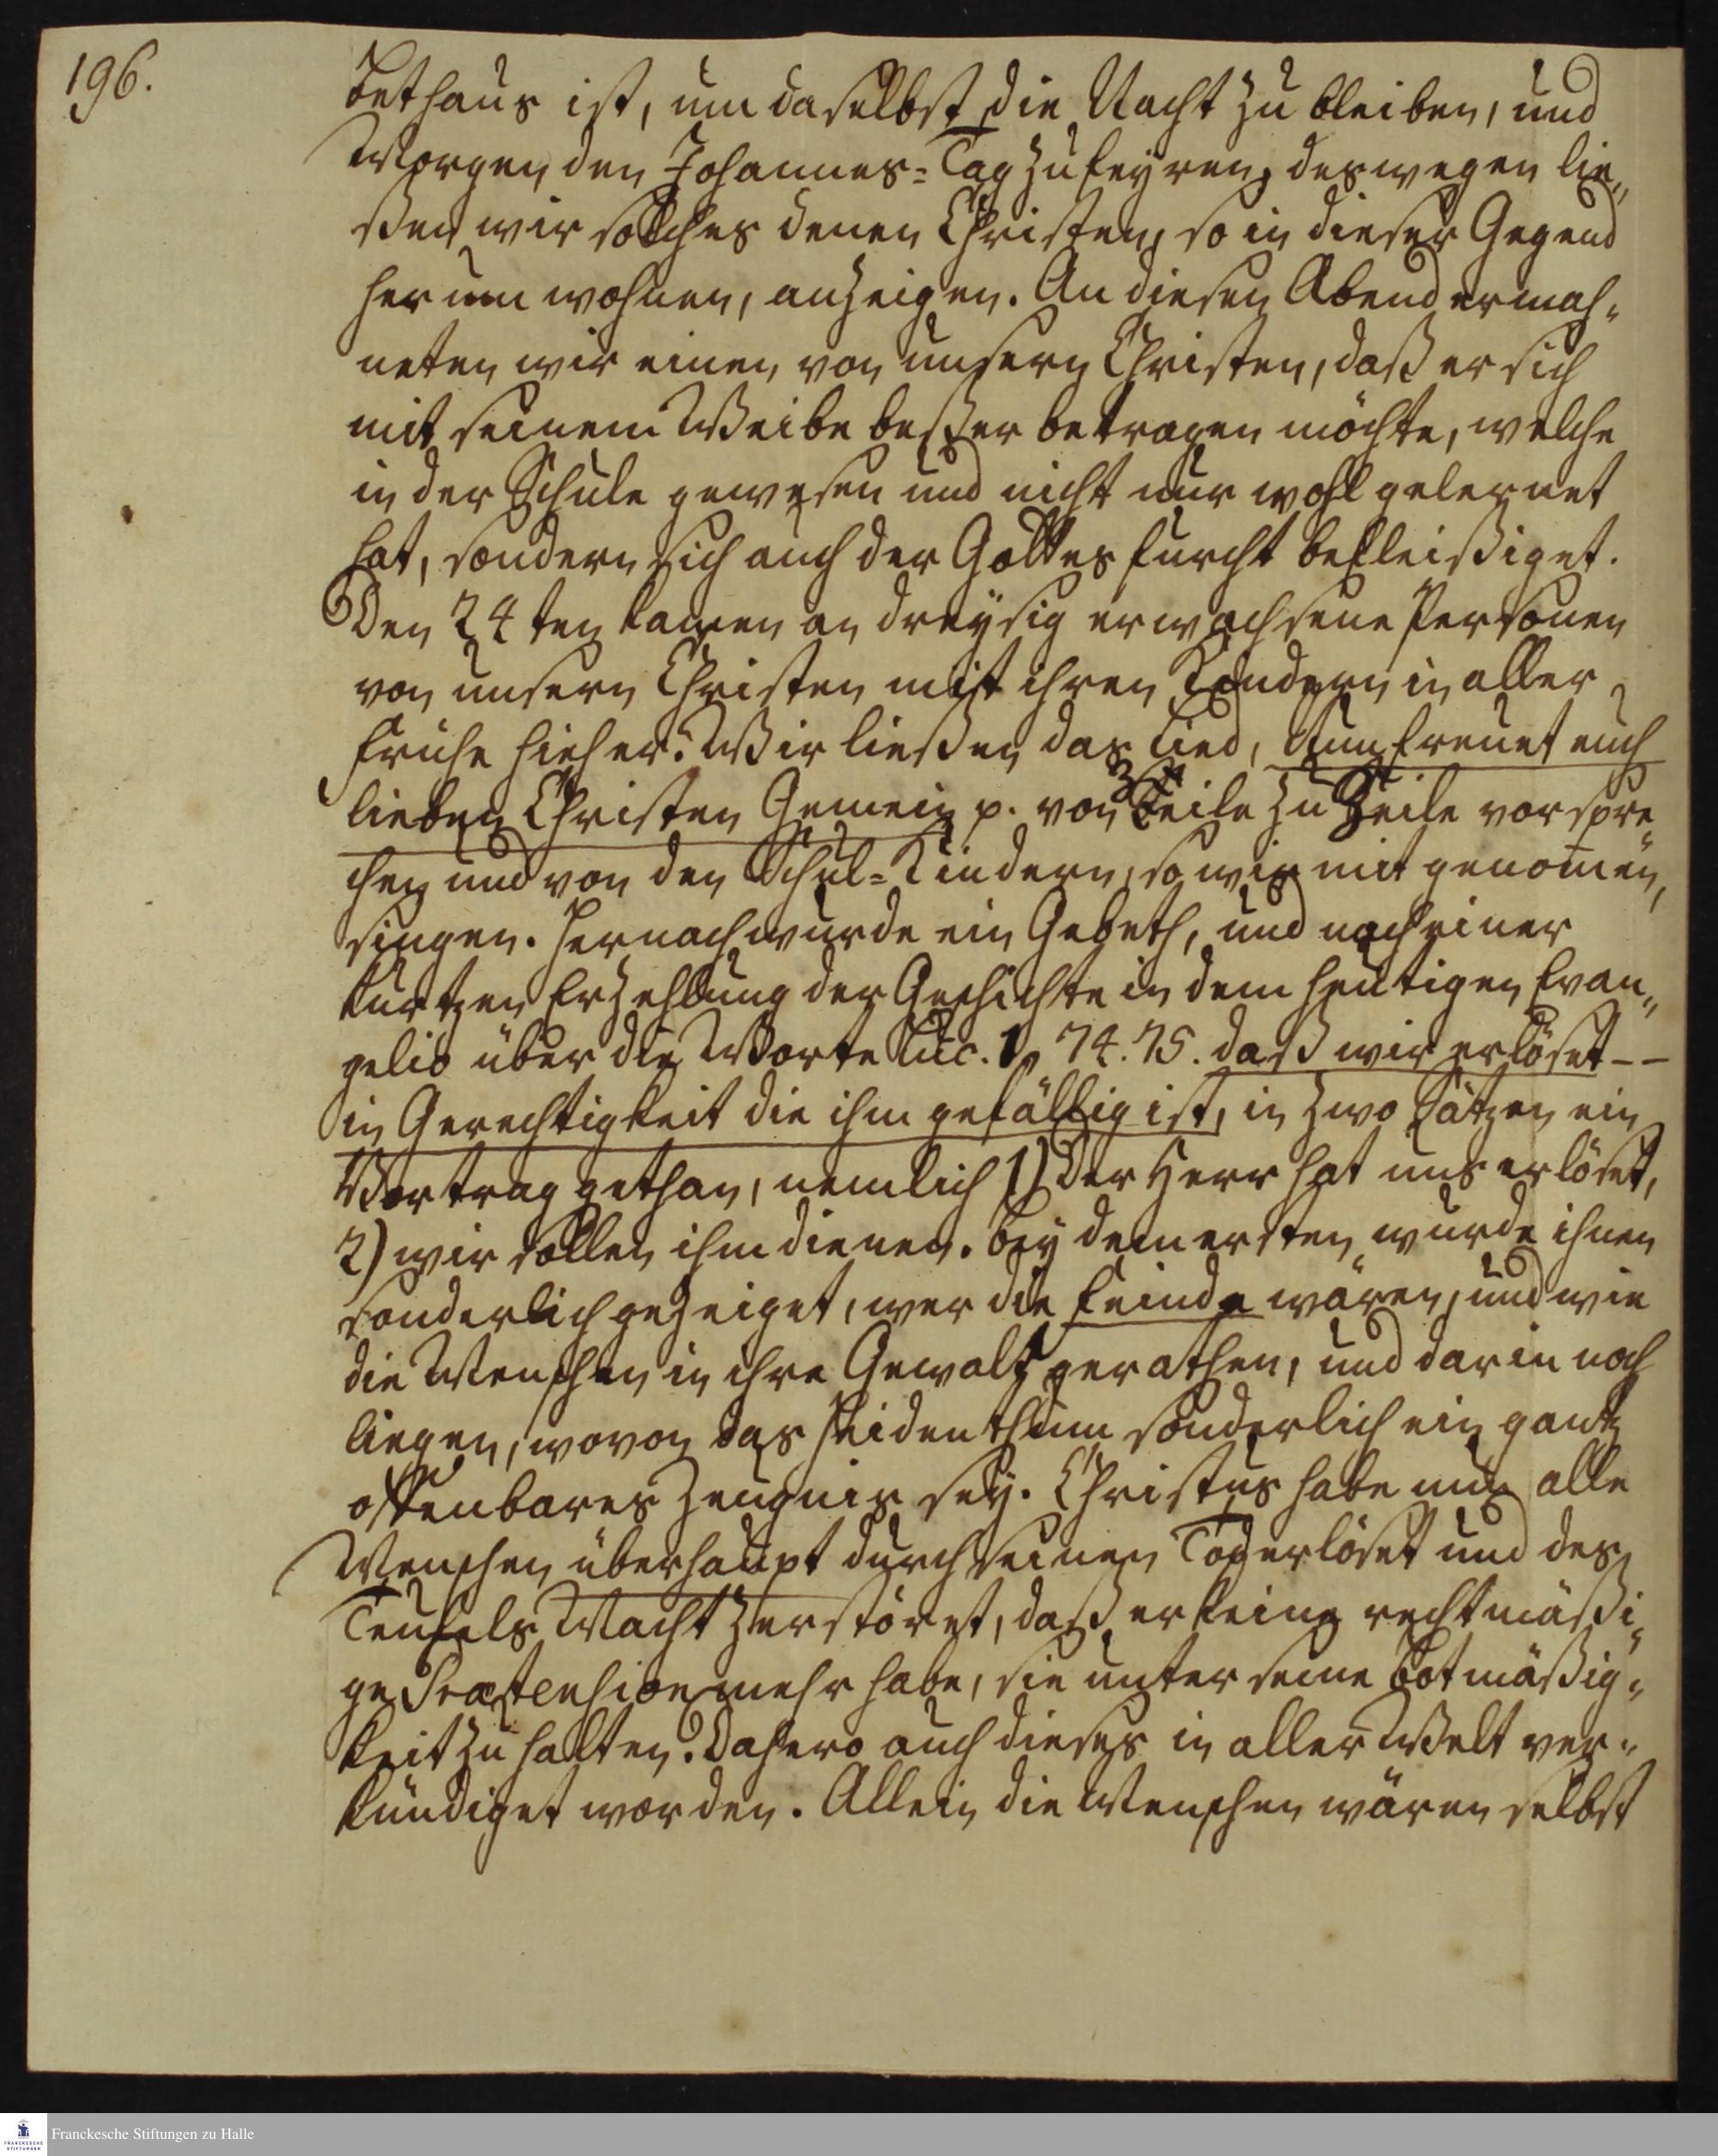 196.
Bethaus ist, um daselbst die Nacht zu bleiben, und
Morgen den Johannes-Tag zu feyren, deswegen lie„
ßen wir solches denen Christen, so in dieser Gegend
herum wohnen, anzeigen. An diesen Abend ermah„
neten wir einen von unsern Christen, daß er sich
mit seinem Weibe beßer betragen möchte, welche
in der Schule gewesen und nicht nur wohl gelernet
hat, sondern sich auch der Gottesfurcht befleißiget.
Den 24ten kamen an dreysig erwachsene Personen
von unsern Christen mit ihren Kindern in aller
Frühe hieher. Wir ließen das Lied, Nun freuet euch
lieben Christen Gemein p. von Zeile zu Zeile vorspre„
chen und von den Schul-Kindern, so wir mit genom̄en,
singen. Hernach wurde ein Gebeth, und nach einer
kurtzen Erzehlung der Geschichte in dem heutigen Evan„
gelio über die Worte Luc. 1, 74.75. daß wir erlöset --
in Gerechtigkeit die ihm gefällig ist, in zwo Sätzen ein
Vortrag gethan, nemlich 1) Der Herr hat uns erlöset,
2) wir sollen ihm dienen. Bey dem ersten wurde ihnen
sonderlich gezeiget, wer die Feinde wären, und wie
die Menschen in ihre Gewalt gerathen, und darin noch
liegen, wovon das Heidenthum sonderlich ein gantz
offenbares Zeugnis sey. Christus habe nun alle
Menschen überhaupt durch seinen Tod erlöset und des
Teufels Macht zerstöret, daß er keine rechtmäßi„
ge Prætension mehr habe, sie unter seine Botmäßig„
keit zu halten. Dahero auch dieses in aller Welt ver„
kündiget worden. Allein die Menschen wären selbst
Franckesche Stiftungen zu Halle